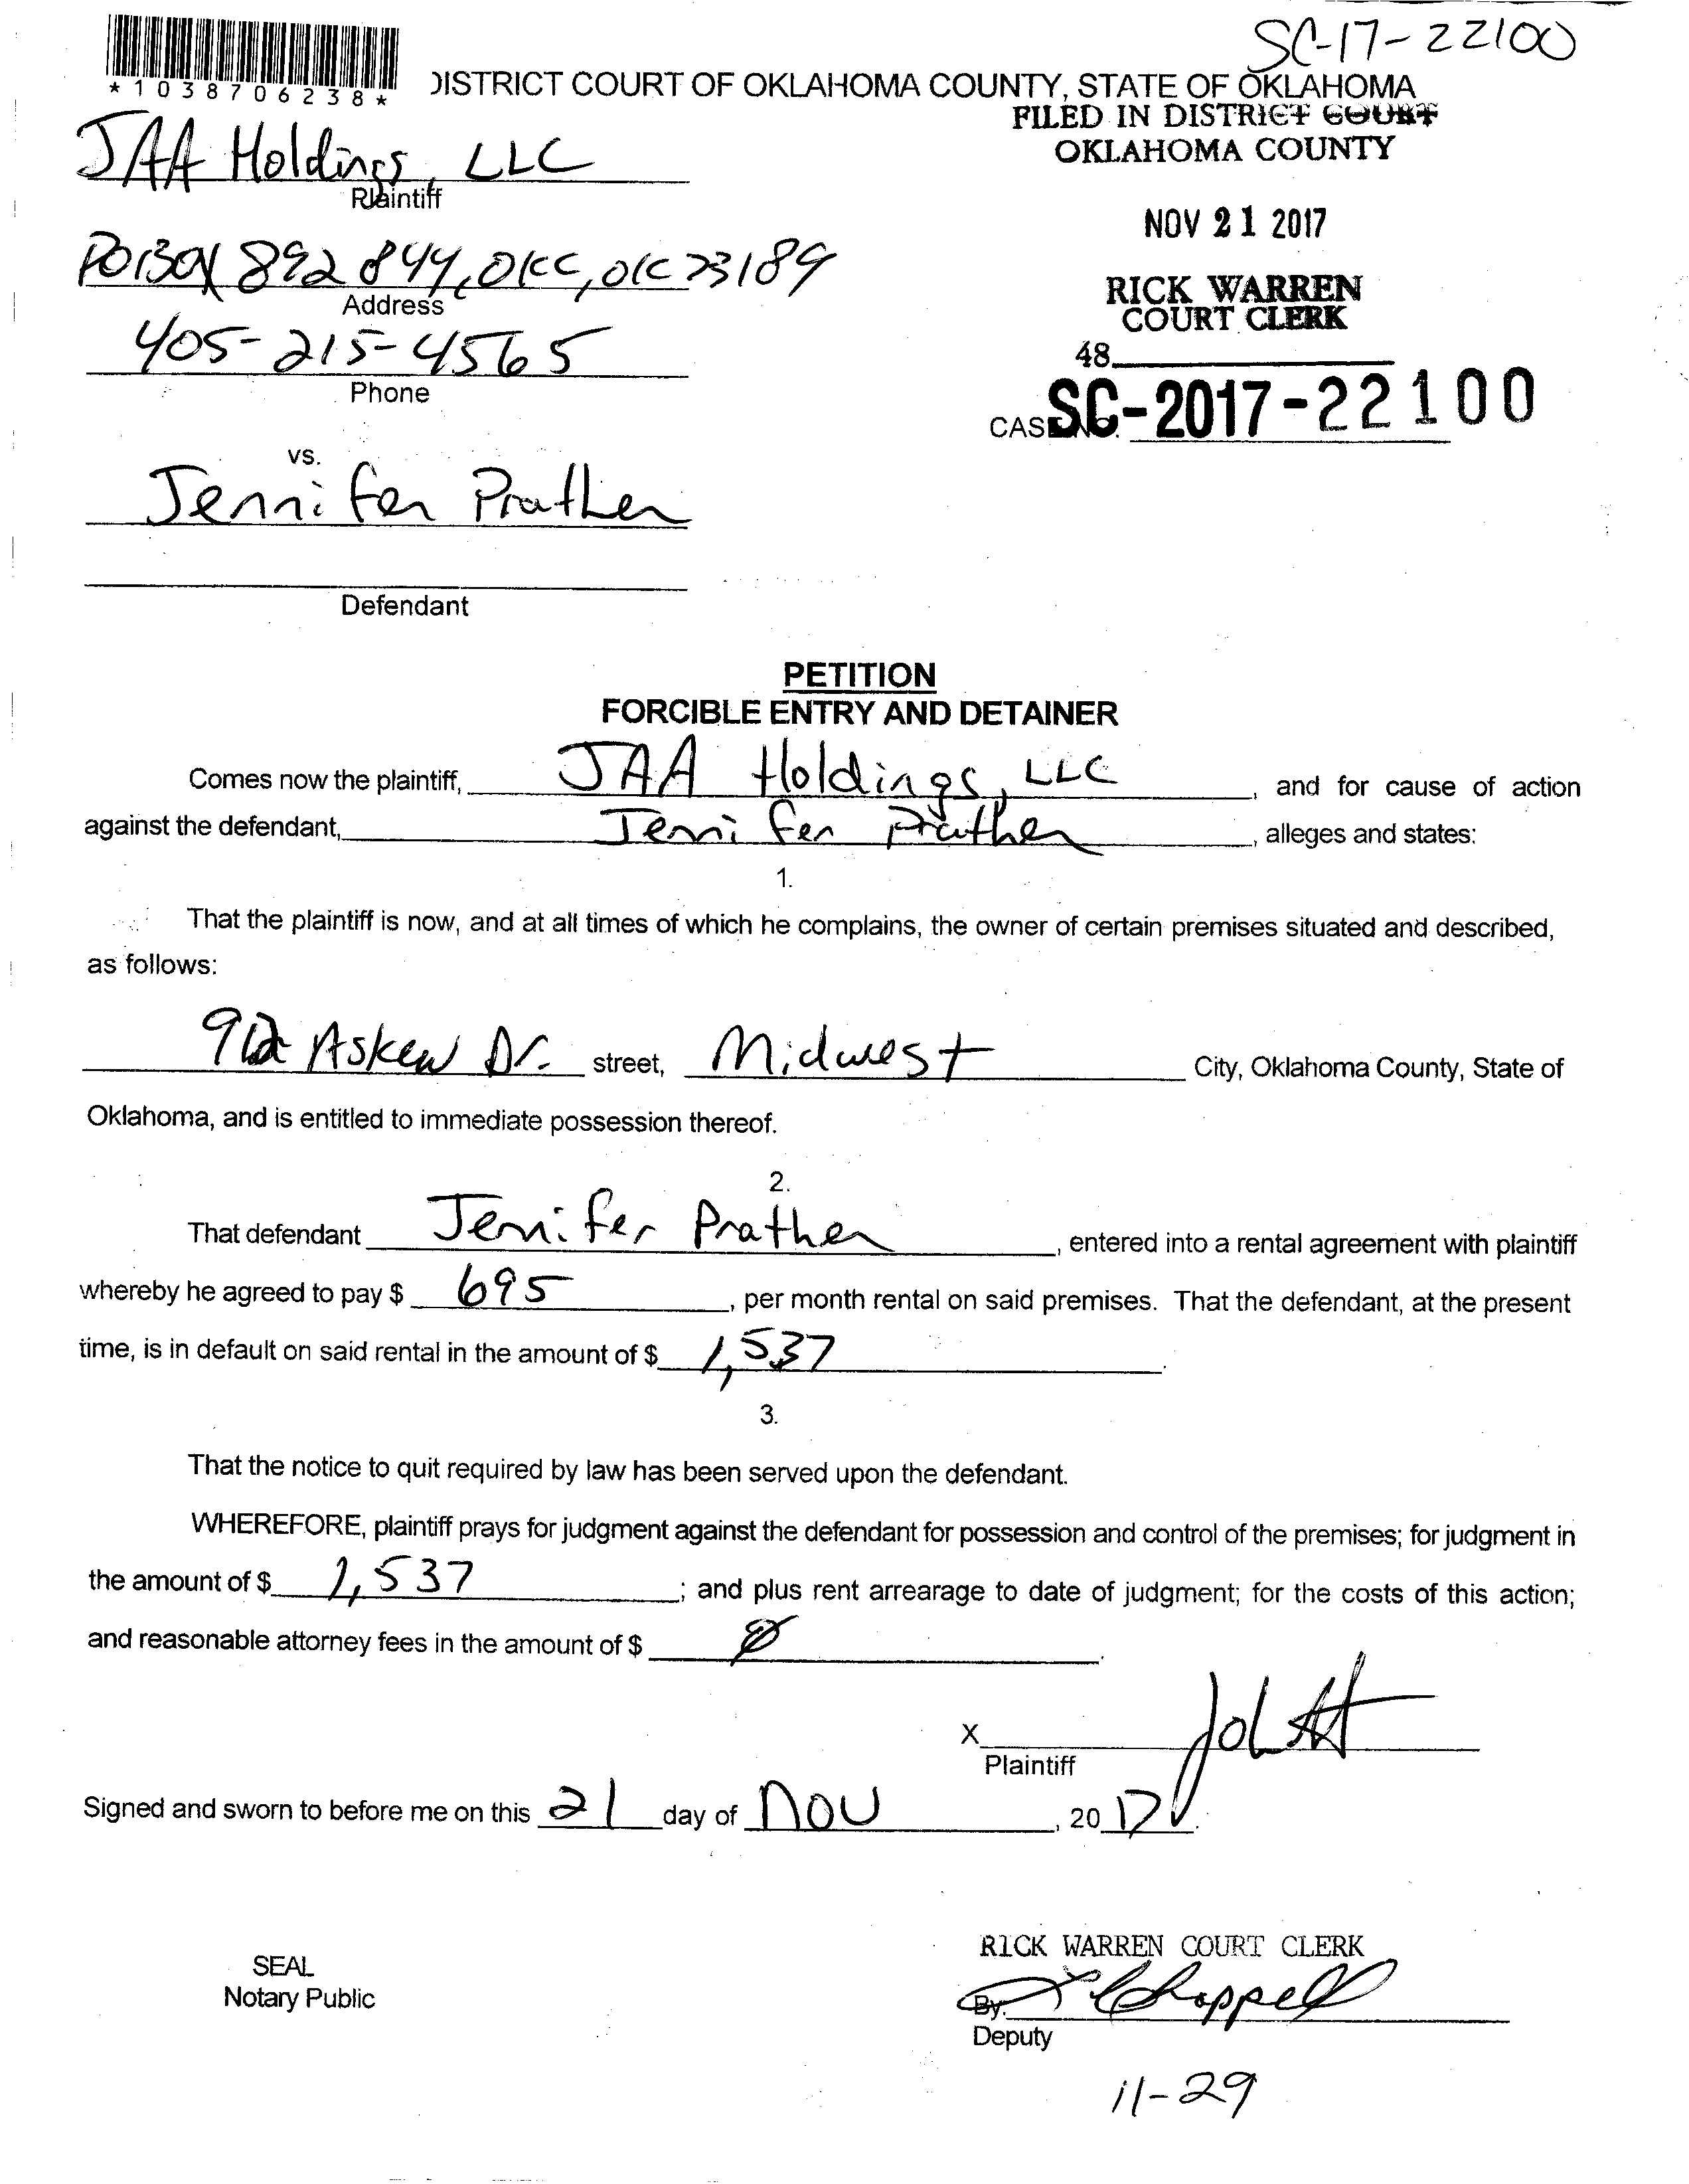 SC-17-22100
*1038706238*
DISTRICT COURT OF OKLAHOMA COUNTY, STATE OF OKLAHOMA
FILED IN DISTRICT COURT
OKLAHOMA COUNTY
JAA Holdings, LLC
Plaintiff
NOV 21 2017
PO BOX 892844, OKC, OK 73189
Address
RICK WARREN
COURT CLERK
405-215-4565
Phone
48
CASE NO. SC-2017-22100
vs.
Jennifer Prather
Defendant
PETITION
FORCIBLE ENTRY AND DETAINER
Comes now the plaintiff, JAA Holdings, LLC, and for cause of action
against the defendant, Jennifer Prather, alleges and states:
1.
That the plaintiff is now, and at all times of which he complains, the owner of certain premises situated and described,
as follows:
912 Askew Dr. street, Midwest City, Oklahoma County, State of
Oklahoma, and is entitled to immediate possession thereof.
2.
That defendant Jennifer Prather, entered into a rental agreement with plaintiff
whereby he agreed to pay $ 695, per month rental on said premises. That the defendant, at the present
time, is in default on said rental in the amount of $ 1,537.
3.
That the notice to quit required by law has been served upon the defendant.
WHEREFORE, plaintiff prays for judgment against the defendant for possession and control of the premises; for judgment in
the amount of $ 1,537; and plus rent arrearage to date of judgment; for the costs of this action;
and reasonable attorney fees in the amount of $ 0.
X
Plaintiff
Signed and sworn to before me on this 21 day of Nov, 2017.
RICK WARREN COURT CLERK
SEAL
Notary Public
By: Chappell
Deputy
11-29